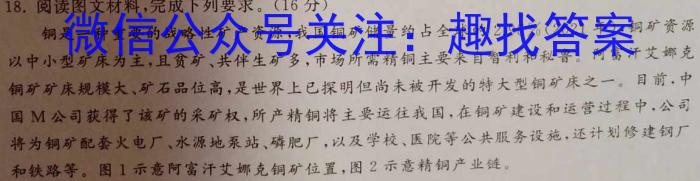 18. 阅读图文材料,完成下列要求。(16分)
微信公众号关注：趣找答案
铜是一种重要的战略性矿产资源,我国铜矿储量约占全
铜矿资源
以中小型矿床为主,且贫矿、共伴生矿多,市场所需精铜主要来自智利和秘鲁。阿富汗艾娜克
铜矿矿床规模大、矿石品位高,是世界上已探明但尚未被开发的特大型铜矿床之一。目前,中
国M公司获得了该矿的采矿权,所产精铜将主要运往我国,在铜矿建设和运营过程中,公司
将为铜矿配套火电厂、水源地泵站、磷肥厂,以及学校、医院等公共服务设施,还计划修建钢厂
和铁路等。图1示意阿富汗艾娜克铜矿位置,图2示意精铜产业链。